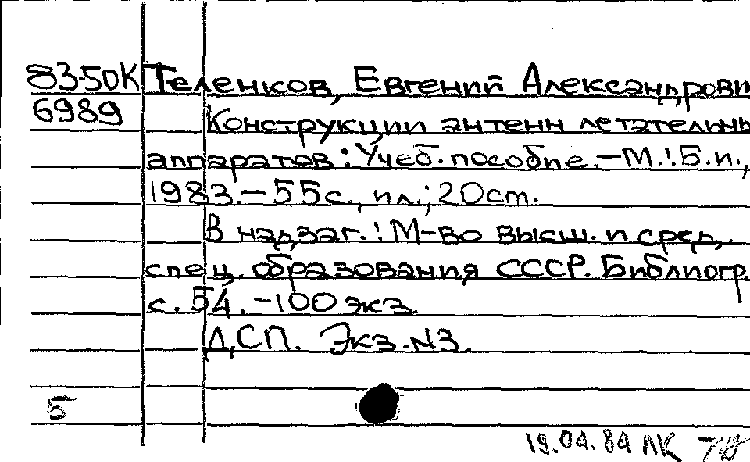 83-50К Теленков, Евгений Александрови
6989 Конструкции антенн летательны
аппаратов: Учеб. пособие. - М.: Б.и.,
1983. - 55 с., ил.; 20 см.
В надзаг.: М-во высш. и сред.
спец. образования СССР. Библиогр.
с. 54. - 100 экз.
ДСП. Экз. N3.
5
19.04.84 ЛК